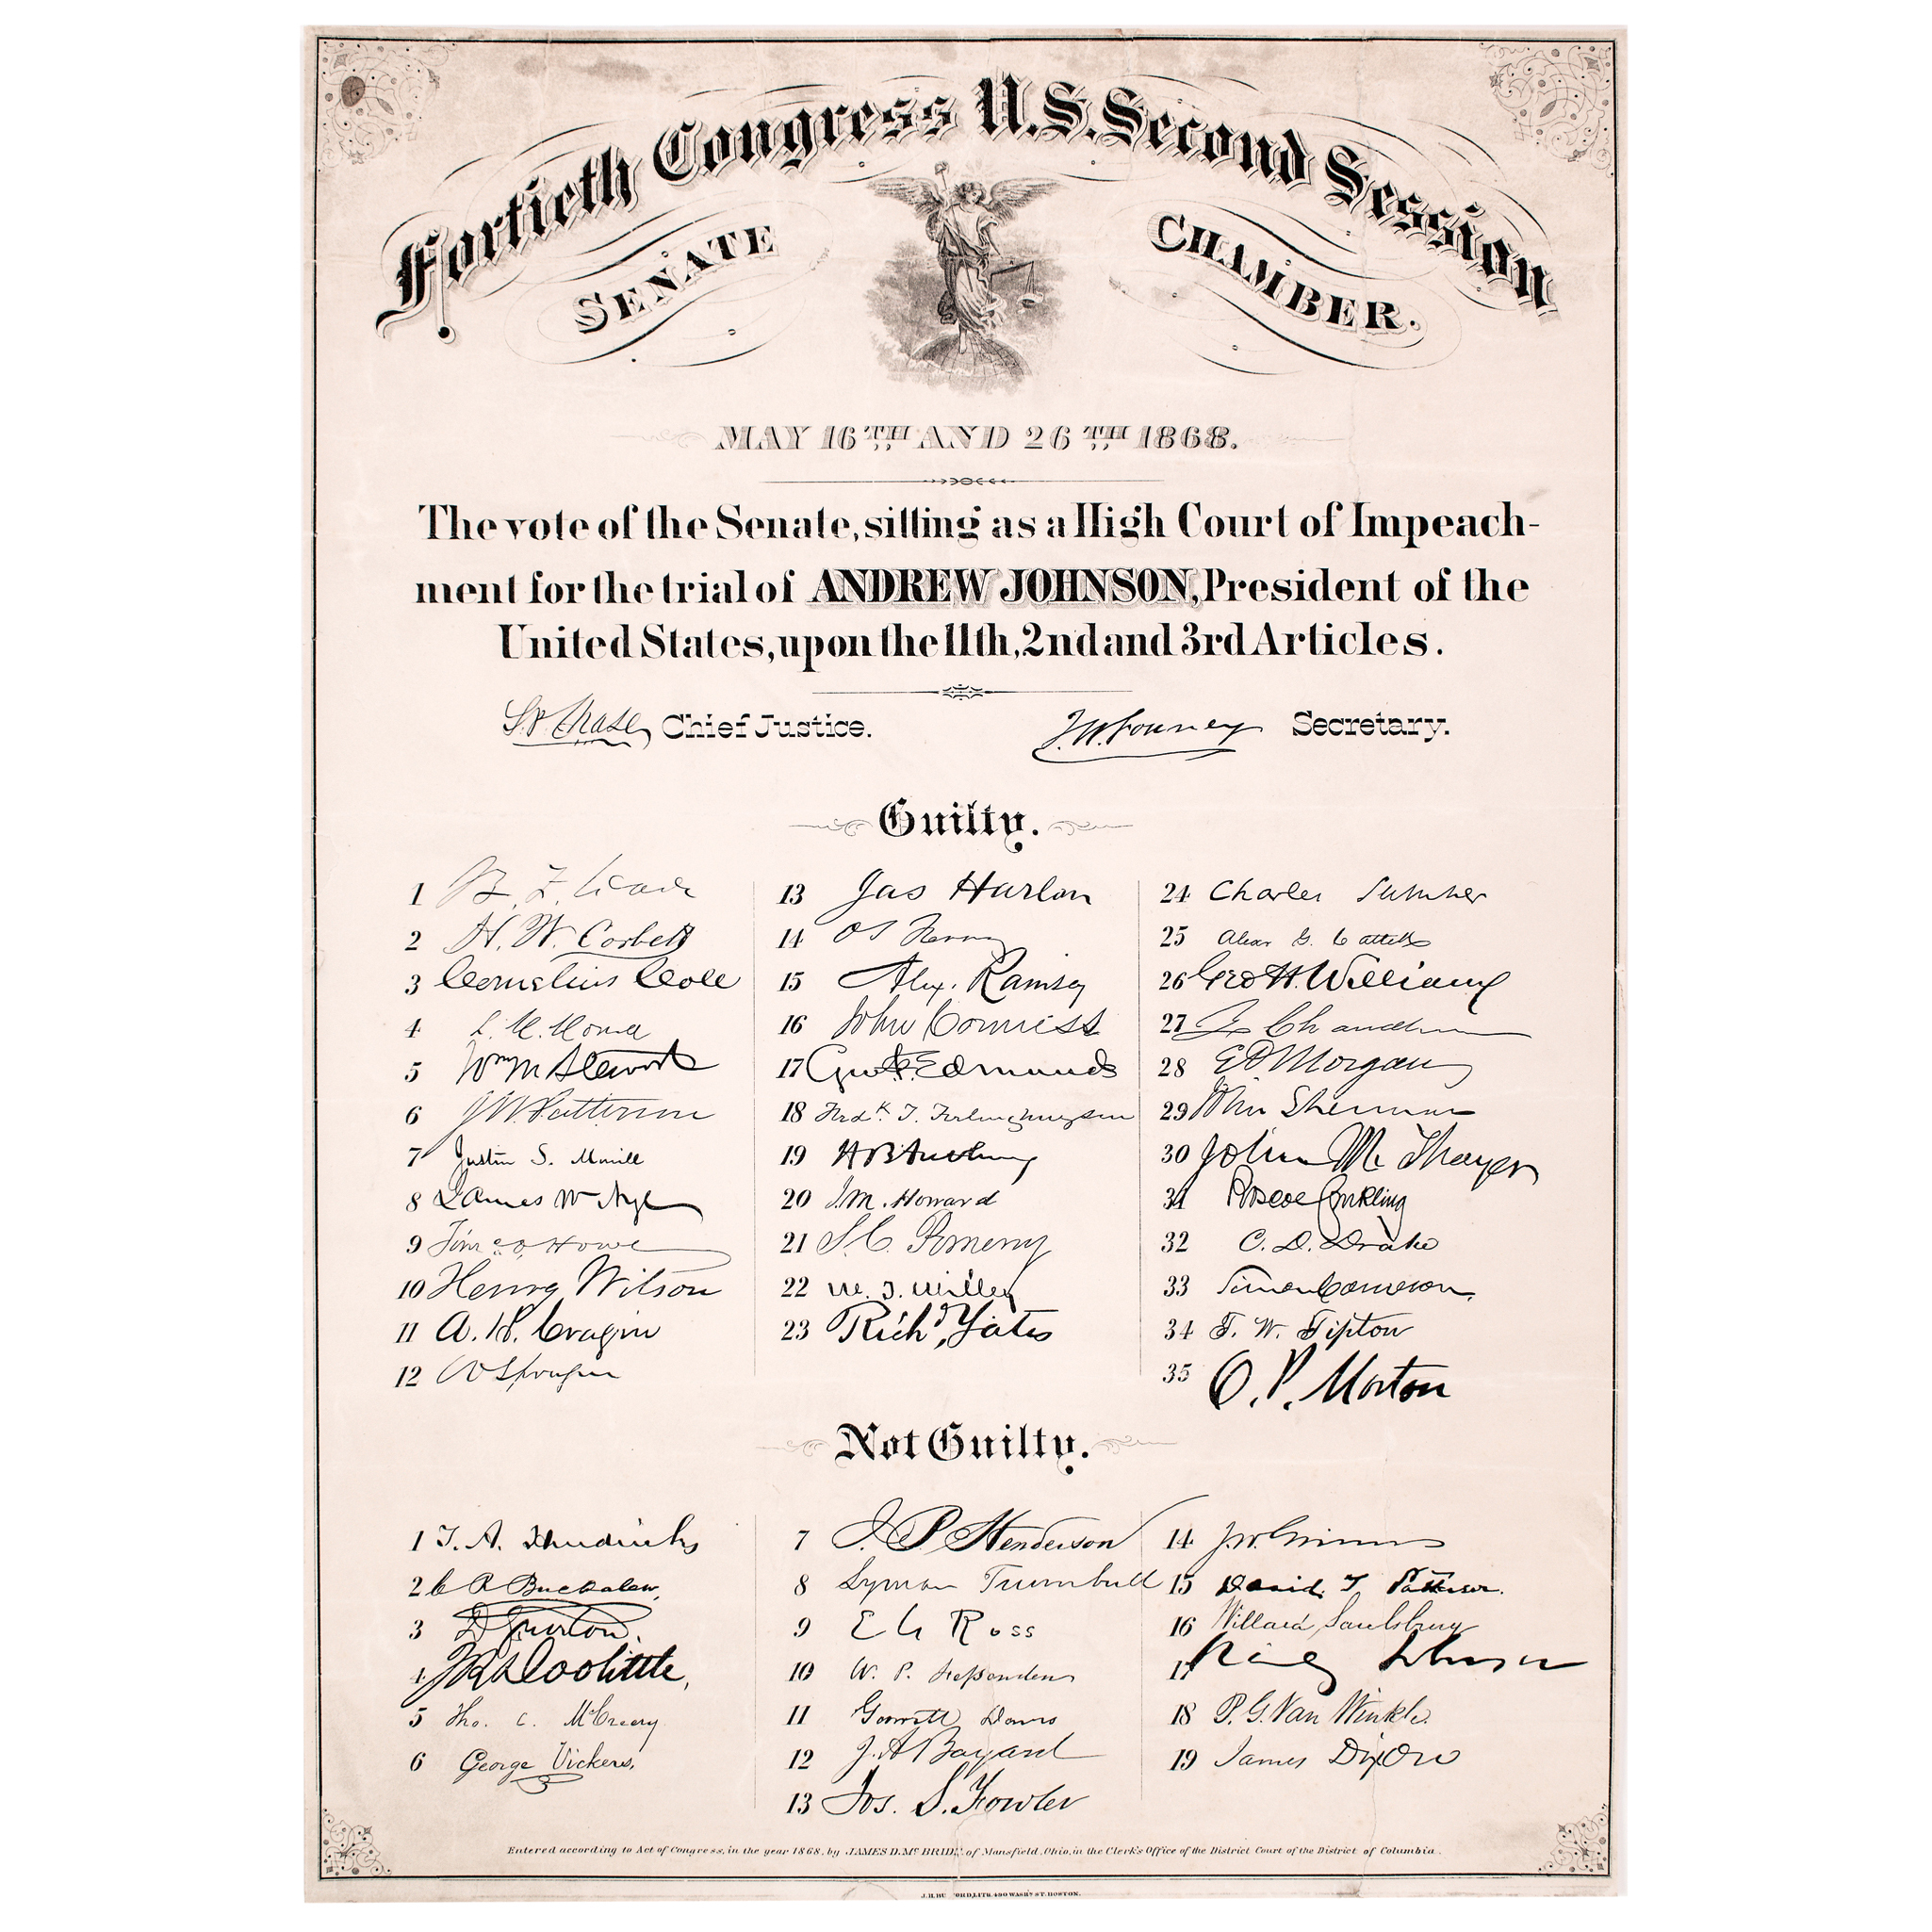 Fortieth Congress U.S. Second Session
SENATE CHAMBER.
MAY 16TH AND 26TH 1868.
The vote of the Senate, sitting as a High Court of Impeach-
ment for the trial of ANDREW JOHNSON, President of the
United States, upon the 11th, 2nd and 3rd Articles.
S.P. Chase, Chief Justice.
J.W. Forney Secretary.
Guilty.
1 B. F. Wade
2 H. W. Corbett
3 Cornelius Cole
4 L. M. Morrill
5 Wm M Stewart
6 J W Patterson
7 Justin S. Morrill
8 James W Nye
9 Tim. O. Howe
10 Henry Wilson
11 A. H. Cragin
12 W Sprague
13 Jas Harlan
14 O S Ferry
15 Alex. Ramsey
16 John Conness
17 Geo F Edmunds
18 Fredk T. Frelinghuysen
19 H B Anthony
20 J. M. Howard
21 S. C. Pomeroy
22 W. T. Willey
23 Richd Yates
24 Charles Sumner
25 Alex G. Cattell
26 Geo H. Williams
27 Z Chandler
28 E D Morgan
29 John Sherman
30 John M Thayer
31 Roscoe Conkling
32 C. D. Drake
33 Simon Cameron.
34 T. W. Tipton
35 O. P. Morton
Not Guilty.
1 T. A. Hendricks
2 C R Buckalew.
3 D Norton.
4 J R Doolittle,
5 Tho. C. McCreery
6 George Vickers,
7 J. B. Henderson
8 Lyman Trumbull
9 E G Ross
10 W. P. Fessenden
11 Garrett Davis
12 J. A Bayard
13 Jos. S. Fowler
14 J. W. Grimes
15 David. T Patterson.
16 Willard Saulsbury
17 Reverdy Johnson
18 P. G. Van Winkle.
19 James Dixon
Entered according to Act of Congress, in the year 1868, by JAMES D. Mc BRIDE, of Mansfield, Ohio, in the Clerk's Office of the District Court of the District of Columbia.
J.H. LITH. 490 WASHn ST. BOSTON.